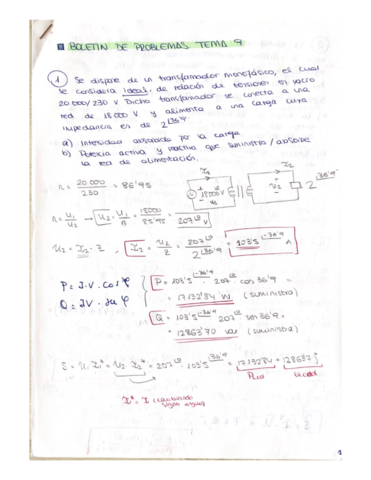 BOLETIN DE PROBLEMAS TEMA 9
1 Se dispone de un transformador monofásico, el cual
se considera ideal, de relación de tensiones en vacío
20 000/230 V. Dicho transformador se conecta a una
red de 18000 V y alimenta a una carga cuya
impedancia es de 2 36'9
a) Intensidad absorbida por la carga
b) Potencia activa y reactiva que suministra / absorbe
la red de alimentación.
n = 20 000 / 230 = 86'95
18000 V
n = U1/U2 → U2 = U1/n = 18000/86'95 = 207 L0 V
U2 = I2 · Z → I2 = U2/Z = 207 L0 / 2 36'9 = 103'5 -36'9 A
P = I·V·cos φ
Q = IV· sen φ
P = 103'5 -36'9 · 207 L0 cos 36'9 =
= 17132'84 W (suministra)
Q = 103'5 -36'9 · 207 L0 sen 36'9 =
= 12863'70 var (suministra)
S = U1·I1* = U2· I2* = 207 L0 · 103'5 36'9 = 17132'84 + 12863'7 j
I* = I (cambiando
signo angulo)
1